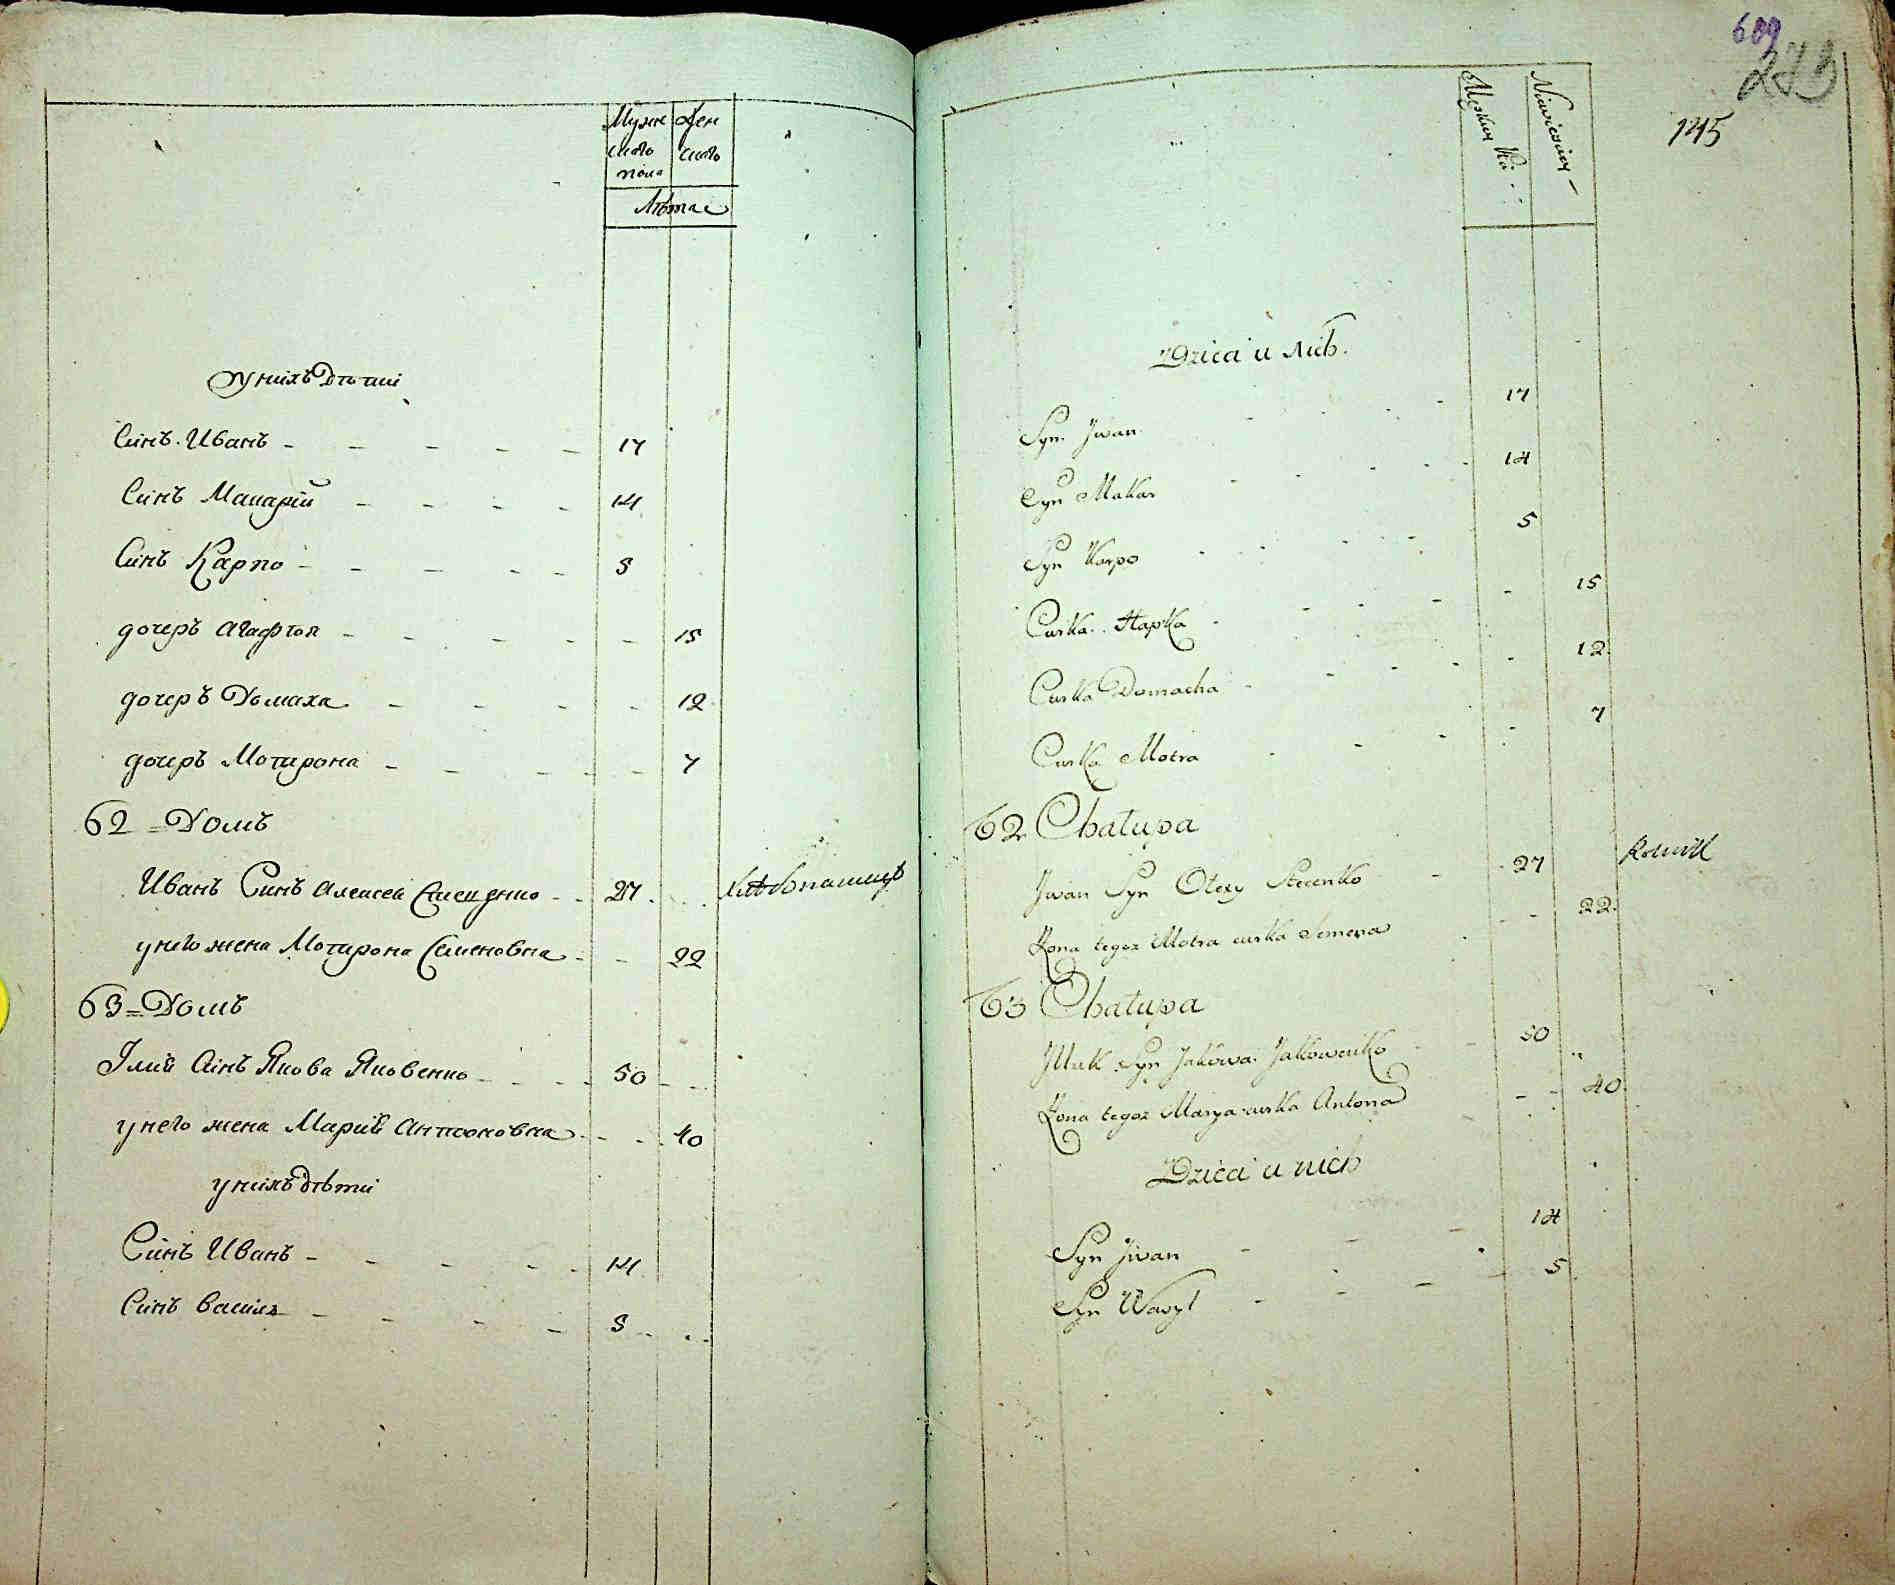 Мужескаго пола
Женскаго
Лѣта
У нихъ Дѣти
Синъ Иванъ 17
Синъ Макарій 14
Синъ Карпо 5
дочеръ Агафия 15
дочеръ Домаха 12
дочеръ Мотирона 7
62 = Домъ
Иванъ Синъ Алексея Стеценко 27 хлѣбопашецъ
у него жена Мотирона Семеновна 22
63 = Домъ
Ілий Синъ Якова Яковенко 50
у него жена Мария Антоновна 40
у нихъ дѣти
Синъ Иванъ 14
Синъ Васил 5
609
273
145
Dzieci u nich.
Syn Jwan 17
Syn Makar 14
Syn Karpo 5
Curka Hapka 15
Curka Domacha 12
Curka Motra 7
62 Chałupa
Jwan Syn Olexy Stecenko 27 Rolnik
Żona tegoż Motra curka Semena 22
63 Chałupa
Jlluk Syn Jakowa Jakowenko 50
Żona tegoż Marya curka Antona 40
Dzieci u nich
Syn Jwan 14
Syn Wasyl 5